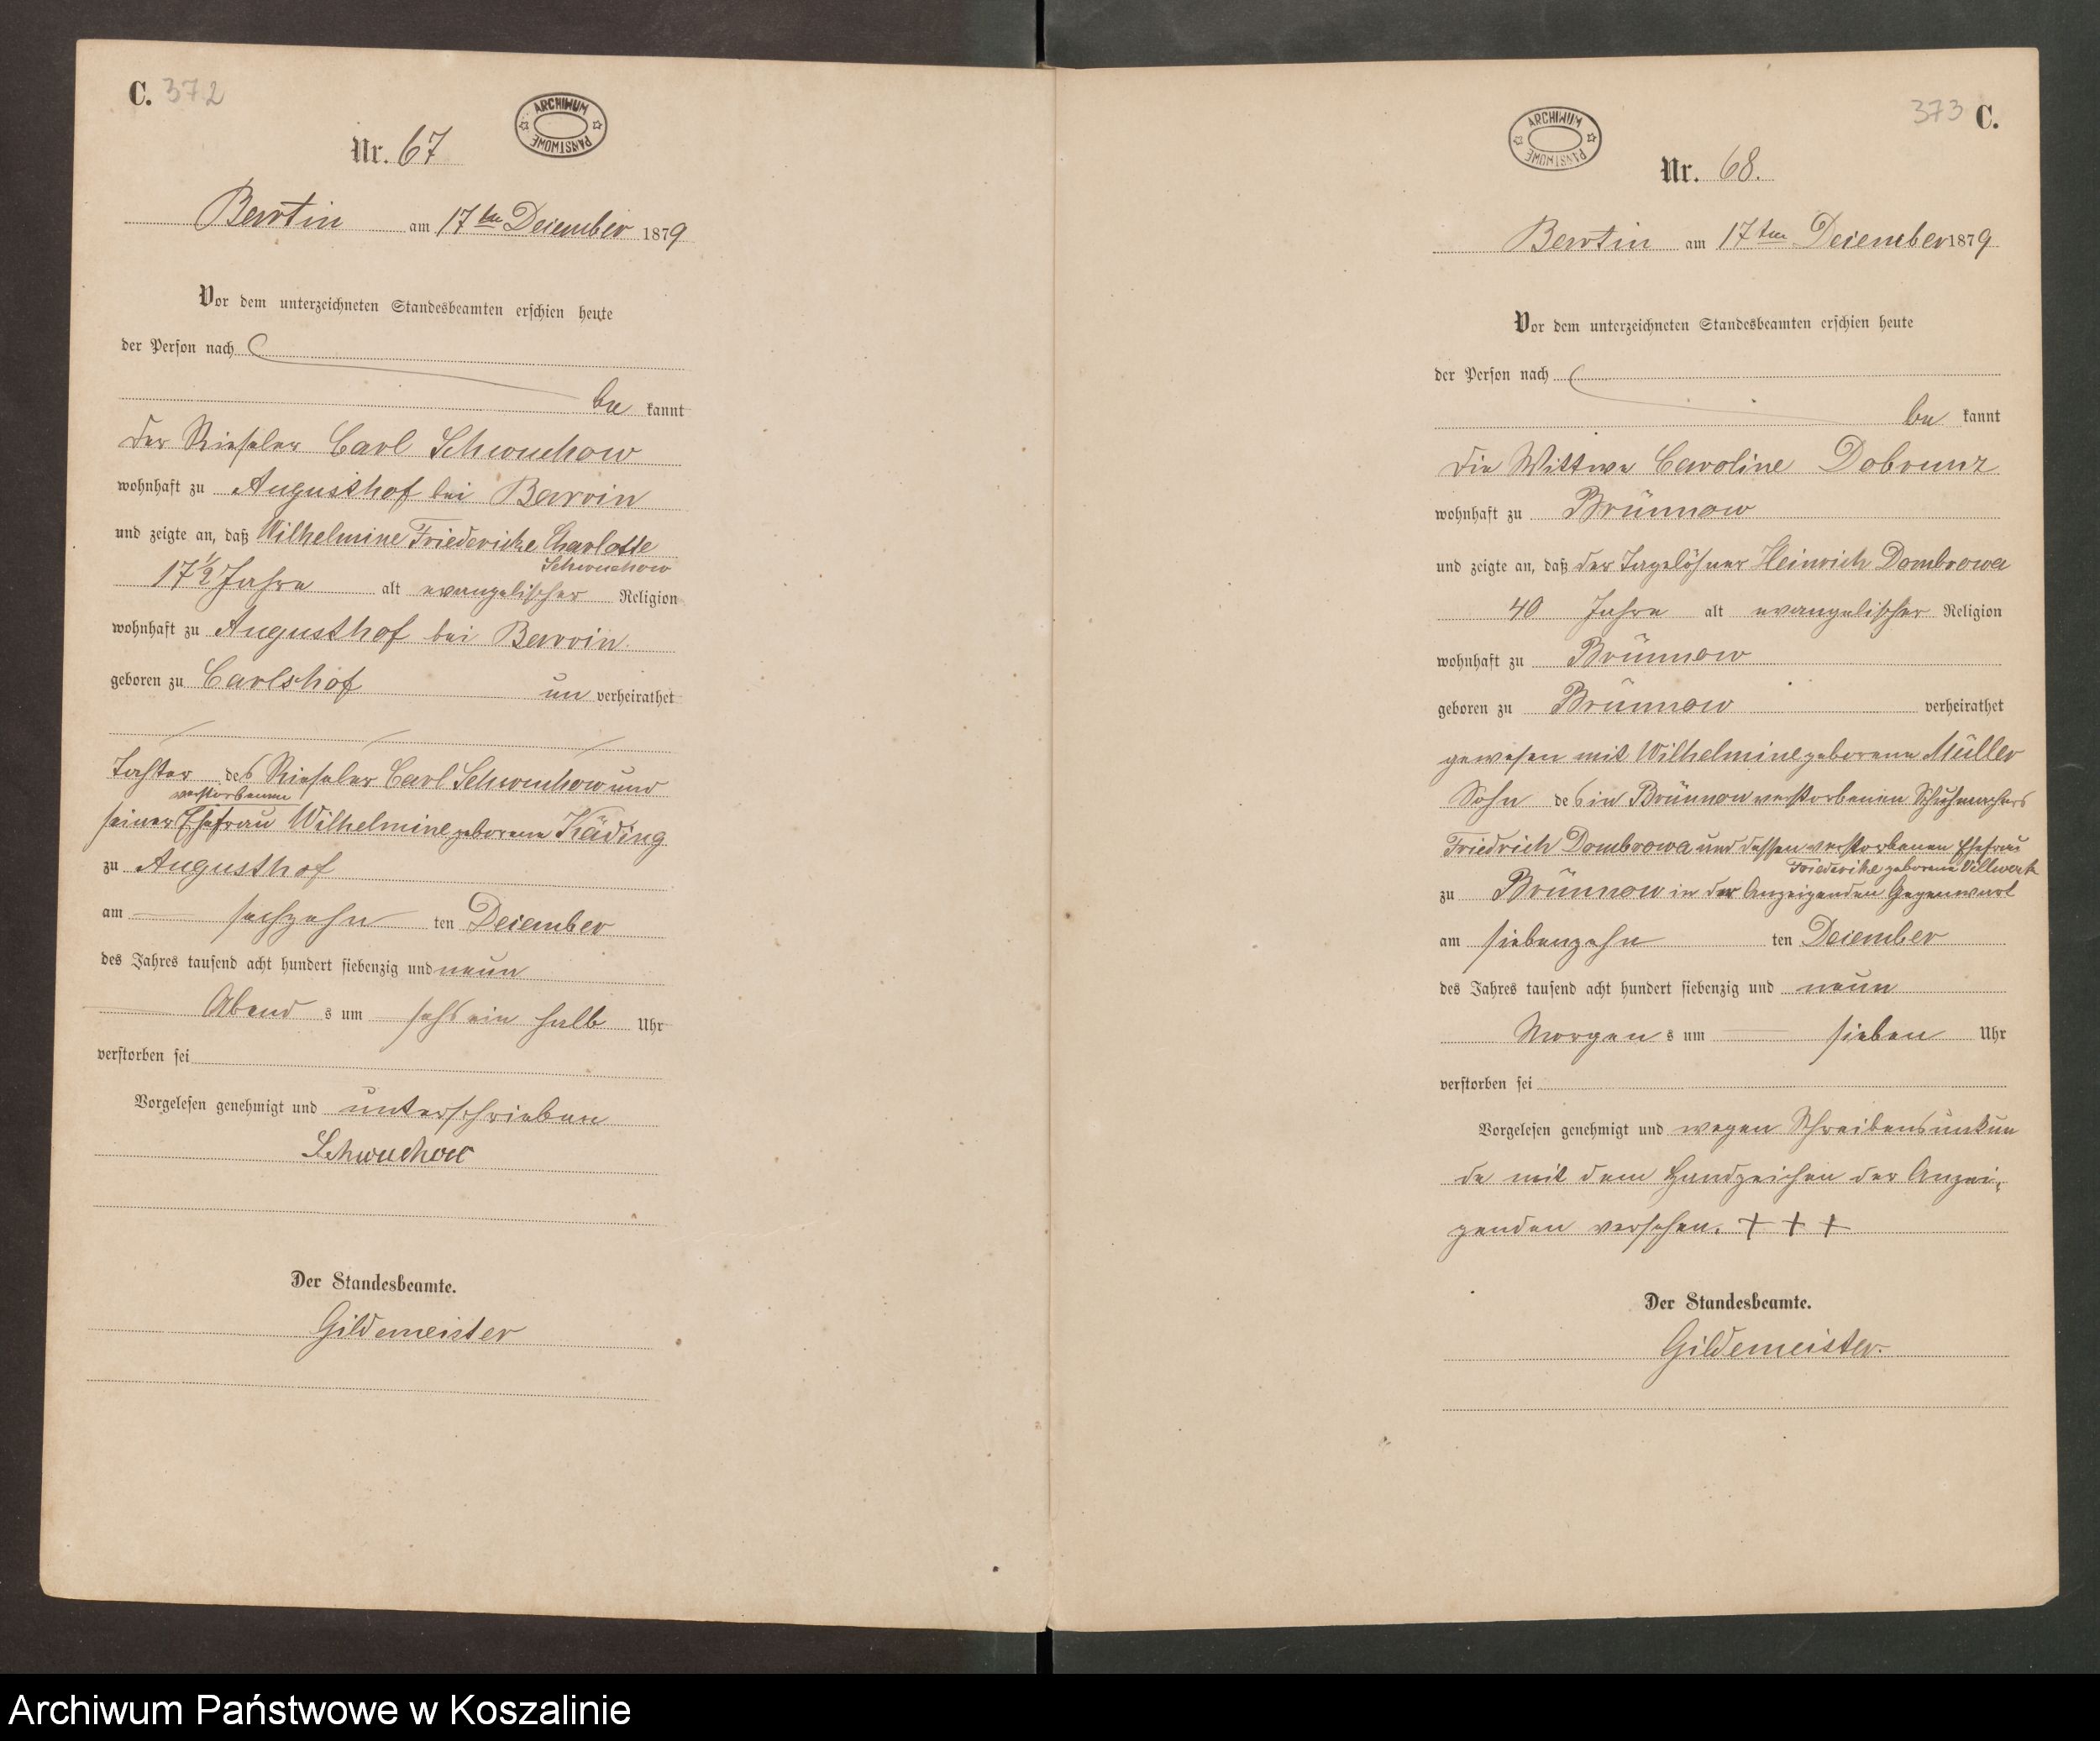 C. 372
ARCHIWUM PAŃSTWOWE
Nr. 67
Bartin am 17ten December 1879
Vor dem unterzeichneten Standesbeamten erschien heute
der Person nach
be kannt
der Rieseler Carl Schwuchow
wohnhaft zu Augusthof bei Barvin
und zeigte an, daß Wilhelmine Friedericke Charlotte
Schwuchow
17 1/2 Jahre alt evangelischer Religion
wohnhaft zu Augusthof bei Barvin
geboren zu Carlshof un verheirathet
Tochter des Rieseler Carl Schwuchow und
verstorbenen
seiner Ehefrau Wilhelmine geborene Käding
zu Augusthof
am sechzehn ten December
des Jahres tausend acht hundert siebenzig und neun
Abend s um sechs ein halb Uhr
verstorben sei
Vorgelesen genehmigt und unterschrieben
Schwuchow
Der Standesbeamte.
Gildemeister
373 C.
ARCHIWUM PAŃSTWOWE
Nr. 68.
Bartin am 17ten December 1879
Vor dem unterzeichneten Standesbeamten erschien heute
der Person nach
be kannt
die Wittwe Caroline Dobrunz
wohnhaft zu Brünnow
und zeigte an, daß der Tagelöhner Heinrich Dombrowa
40 Jahre alt evangelischer Religion
wohnhaft zu Brünnow
geboren zu Brünnow verheirathet
gewesen mit Wilhelmine geborene Müller
Sohn des in Brünnow verstorbenen Schuhmachers
Friedrich Dombrowa und dessen verstorbenen Ehefrau
Friederike geborene Villwock
zu Brünnow in der Anzeigenden Gegenwart
am siebenzehn ten December
des Jahres tausend acht hundert siebenzig und neun
Morgen s um sieben Uhr
verstorben sei
Vorgelesen genehmigt und wegen Schreibensunkun
de mit dem Handzeichen der Anzei-
genden versehen. + + +
Der Standesbeamte.
Gildemeister.
Archiwum Państwowe w Koszalinie